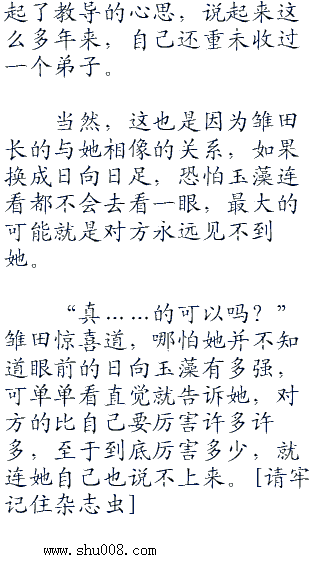 起了教导的心思，说起来这
么多年来，自己还重未收过
一个弟子。
当然，这也是因为雏田
长的与她相像的关系，如果
换成日向日足，恐怕玉藻连
看都不会去看一眼，最大的
可能就是对方永远见不到
她。
“真……的可以吗？”
雏田惊喜道，哪怕她并不知
道眼前的日向玉藻有多强，
可单单看直觉就告诉她，对
方的比自己要厉害许多许
多，至于到底厉害多少，就
连她自己也说不上来。[请牢
记住杂志虫]
www.shu008.com